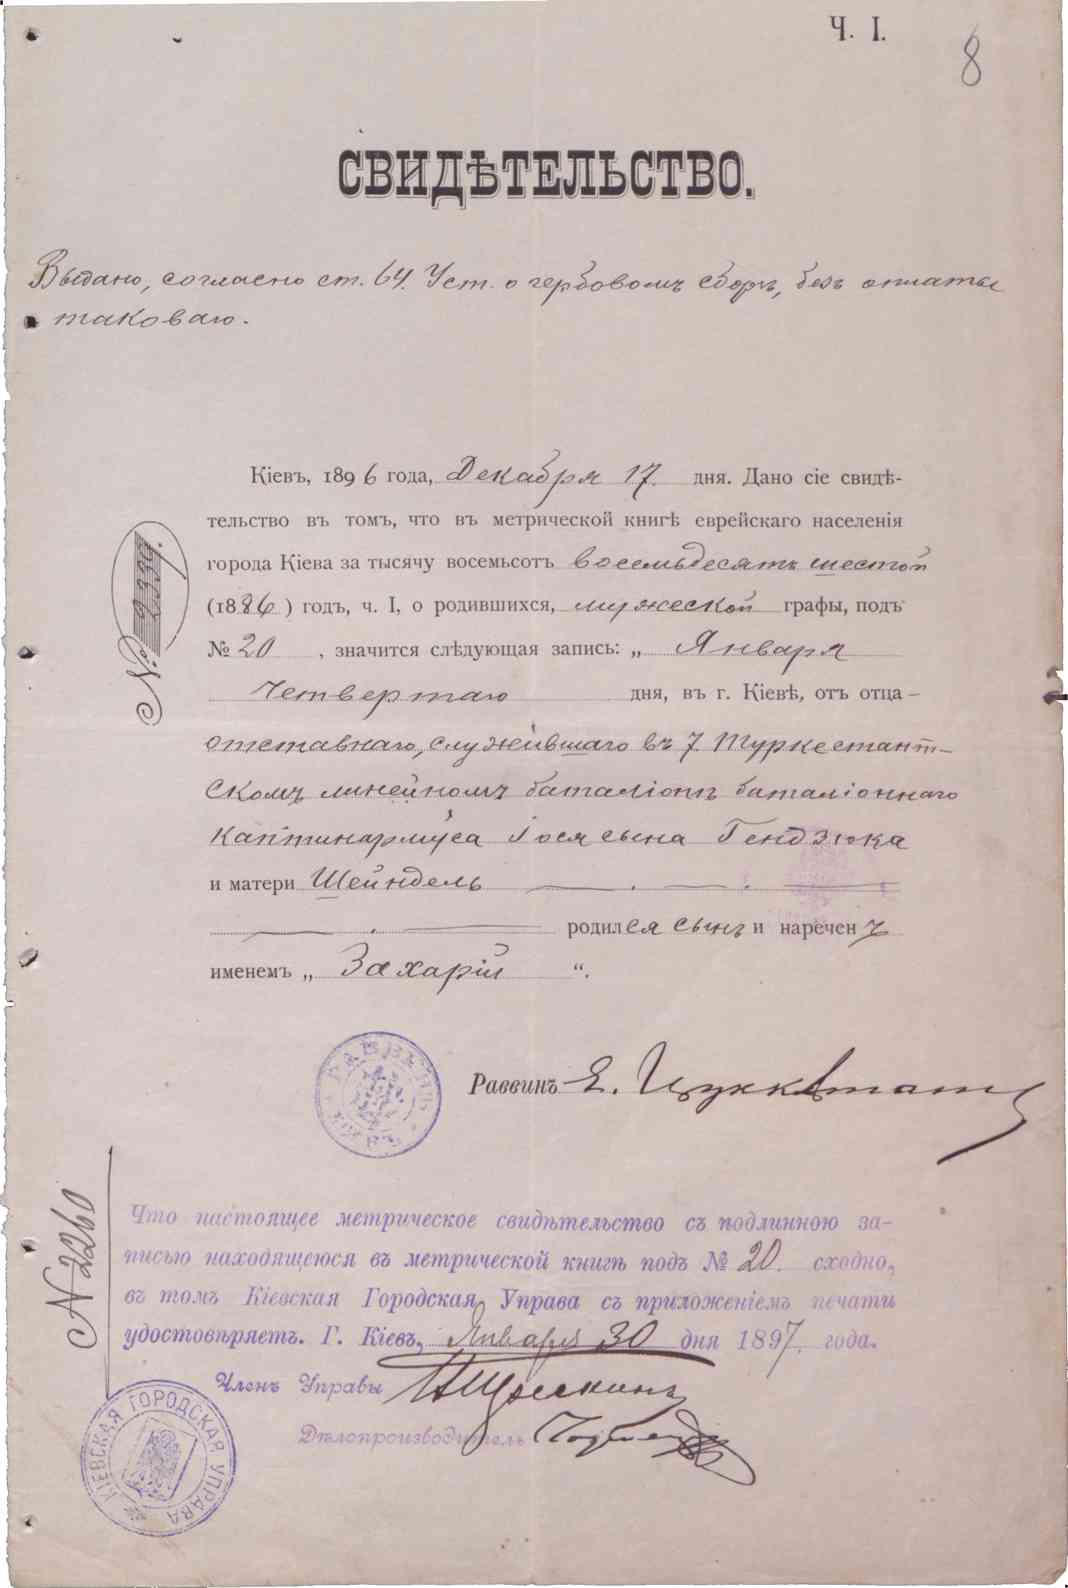 Ч. I.
8
СВИДѢТЕЛЬСТВО.
Выдано, согласно ст. 64. Уст. о гербовомъ сборѣ, безъ оплаты
таковаго.
Кіевъ, 1896 года, Декабря 17. дня. Дано сіе свидѣ-
тельство въ томъ, что въ метрической книгѣ еврейскаго населенія
города Кіева за тысячу восемьсотъ восемьдесятъ шестой
(1886) годъ, ч. I, о родившихся, мужеской графы, подъ
№ 20 , значится слѣдующая запись: „ Января
Четвертаго дня, въ г. Кіевѣ, отъ отца -
отставнаго, служившаго въ 7 Туркестант-
скомъ линейномъ баталіонѣ баталіоннаго
каптинармуса Іося сына Гендзюка
и матери Шейндель
родился сынъ и нареченъ
именемъ „ Захарій “.
№ 2339.
Раввинъ Е. Цуккерманъ
РАВВИНЪ КІЕВЪ
№ 2260
Что настоящее метрическое свидѣтельство съ подлинною за-
писью находящеюся въ метрической книгѣ подъ № 20. сходно,
въ томъ Кіевская Городская Управа съ приложеніемъ печати
удостовѣряетъ. Г. Кіевъ, Января 30 дня 1897. года.
Членъ Управы
Дѣлопроизводитель
КІЕВСКАЯ ГОРОДСКАЯ УПРАВА